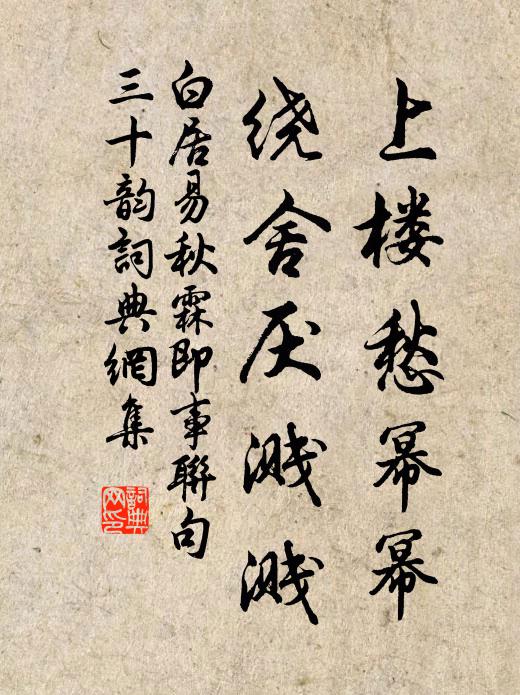 上楼愁幂幂
绕舍厌溅溅
白居易秋霖即事聯句
三十韵詞典網集
詞典網印